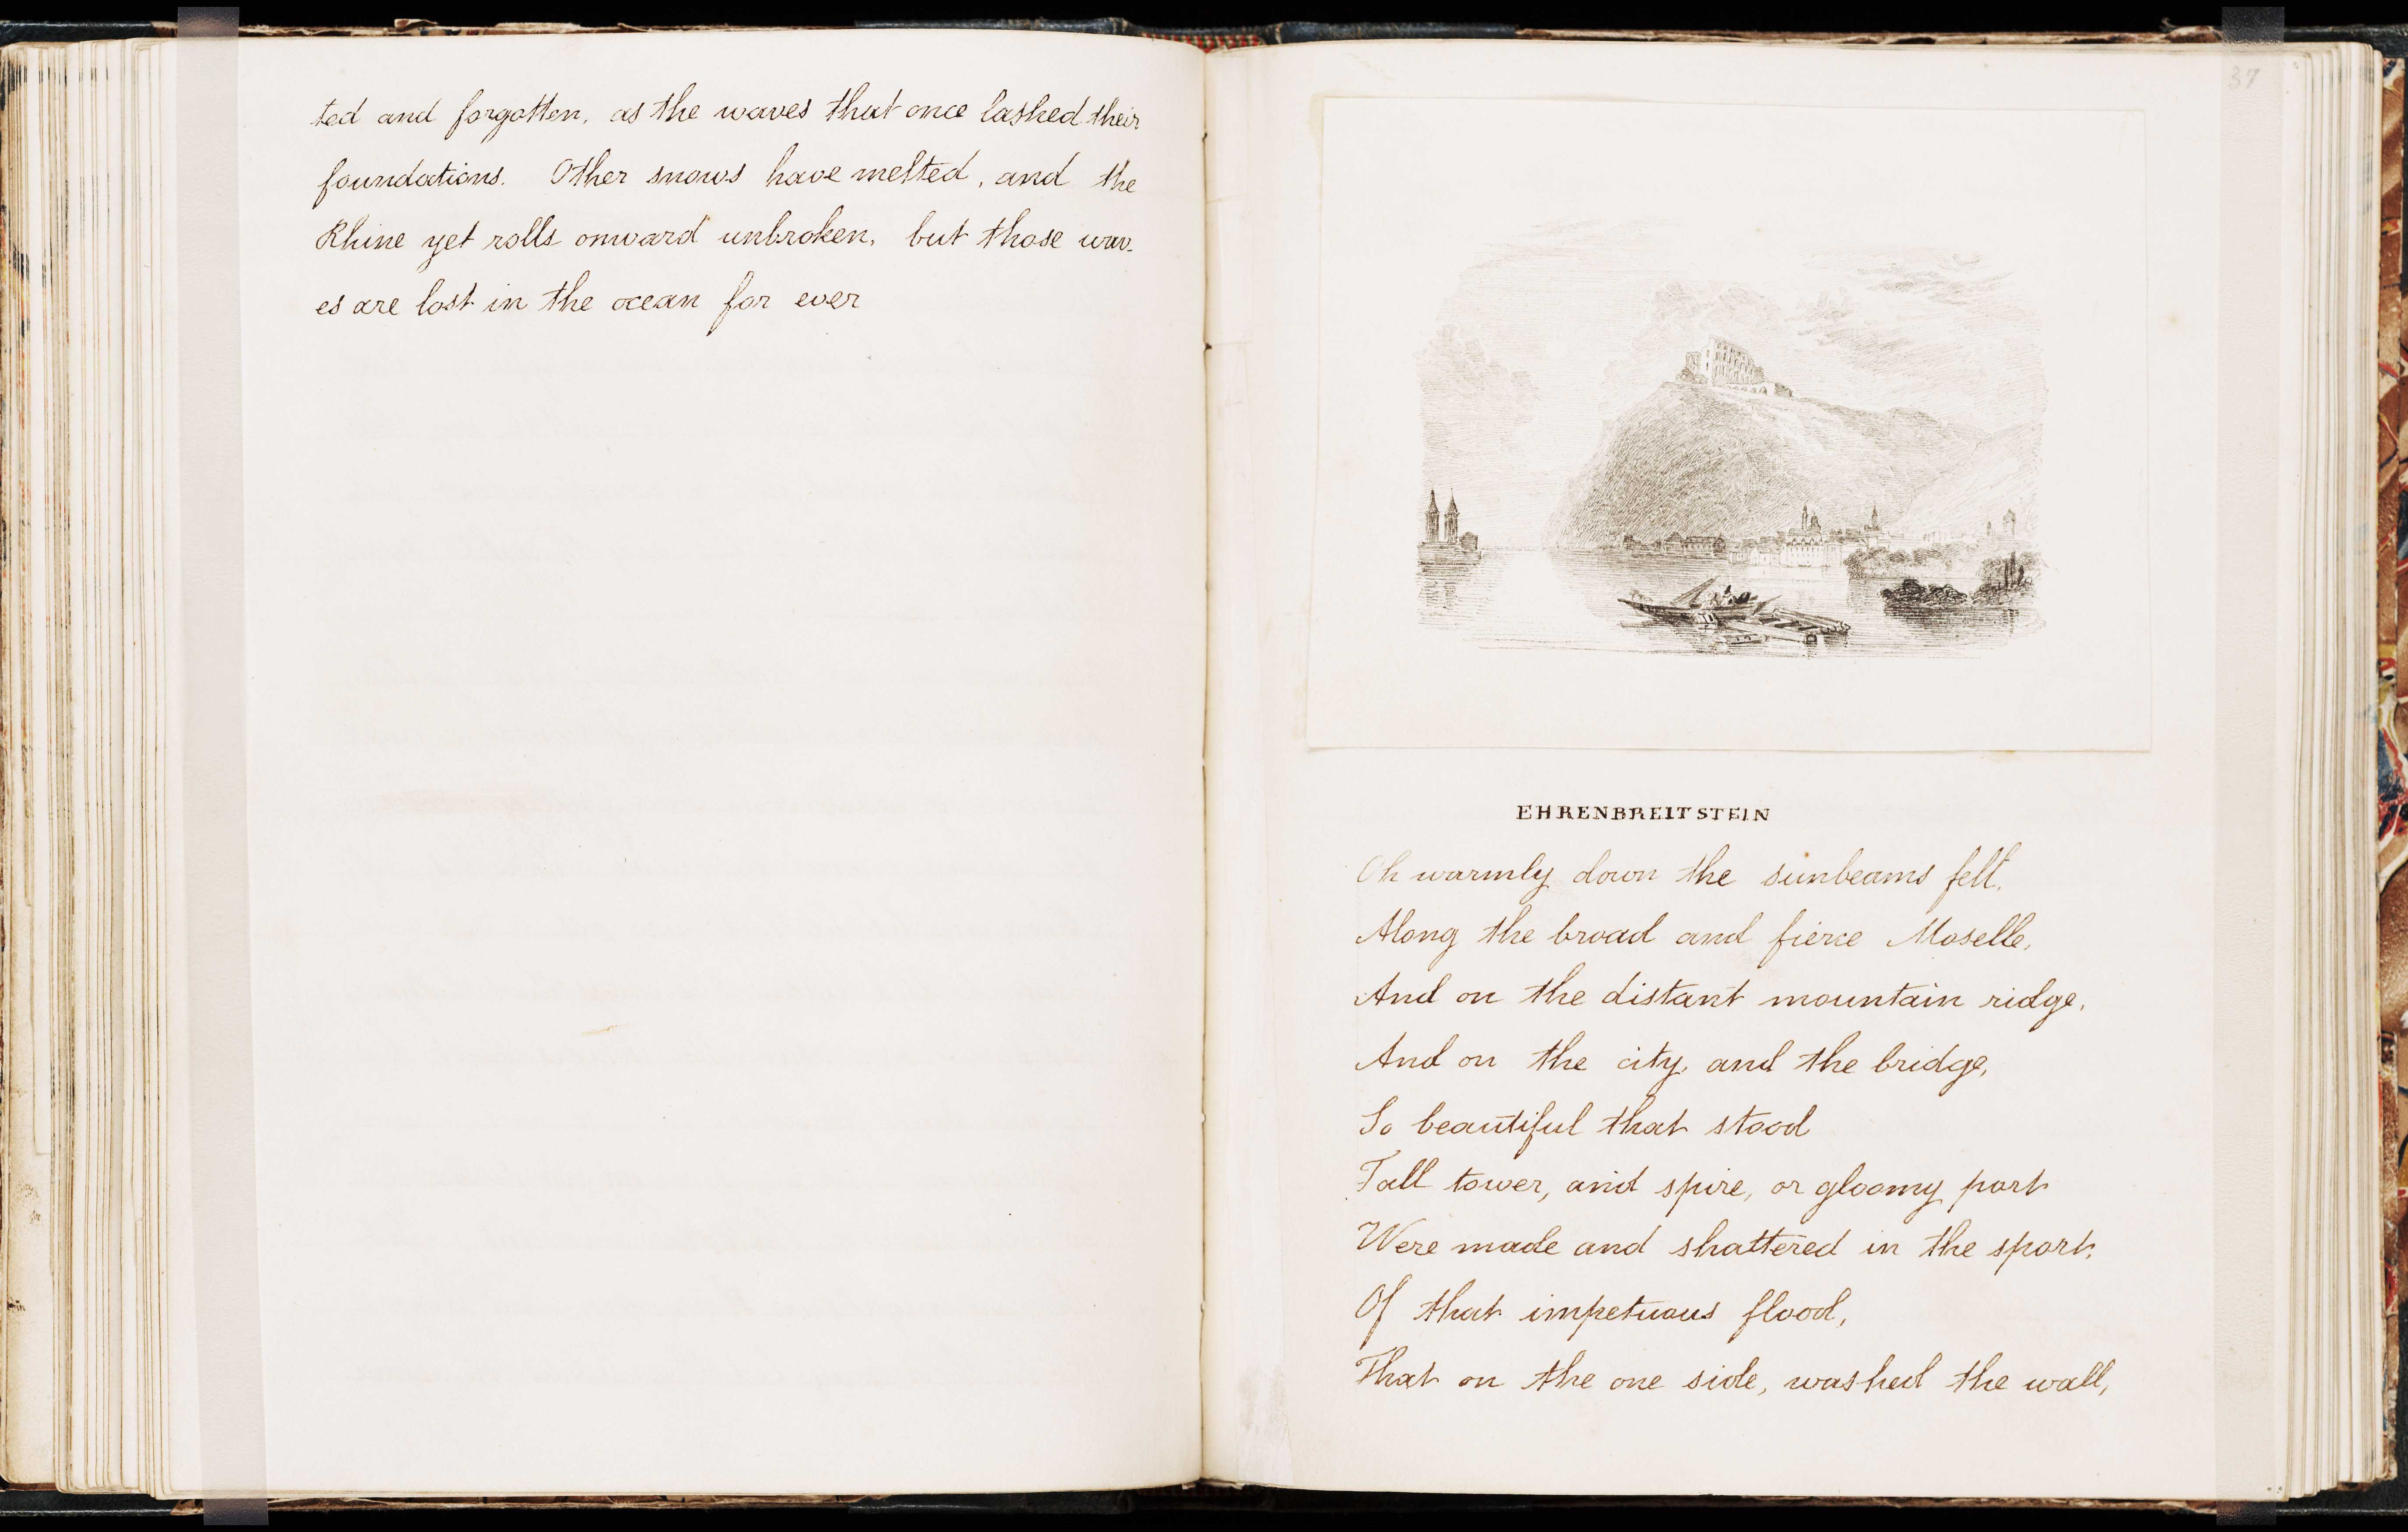 ted and forgotten, as the waves that once lashed their
foundations. Other snows have melted, and the
Rhine yet rolls onward unbroken, but those wav-
es are lost in the ocean for ever
37
EHRENBREITSTEIN
Oh warmly down the sunbeams fell,
Along the broad and fierce Moselle,
And on the distant mountain ridge,
And on the city, and the bridge,
So beautiful that stood
Tall tower, and spire, or gloomy port
Were made and shattered in the sport,
Of that impetuous flood,
That on the one side, washed the wall,